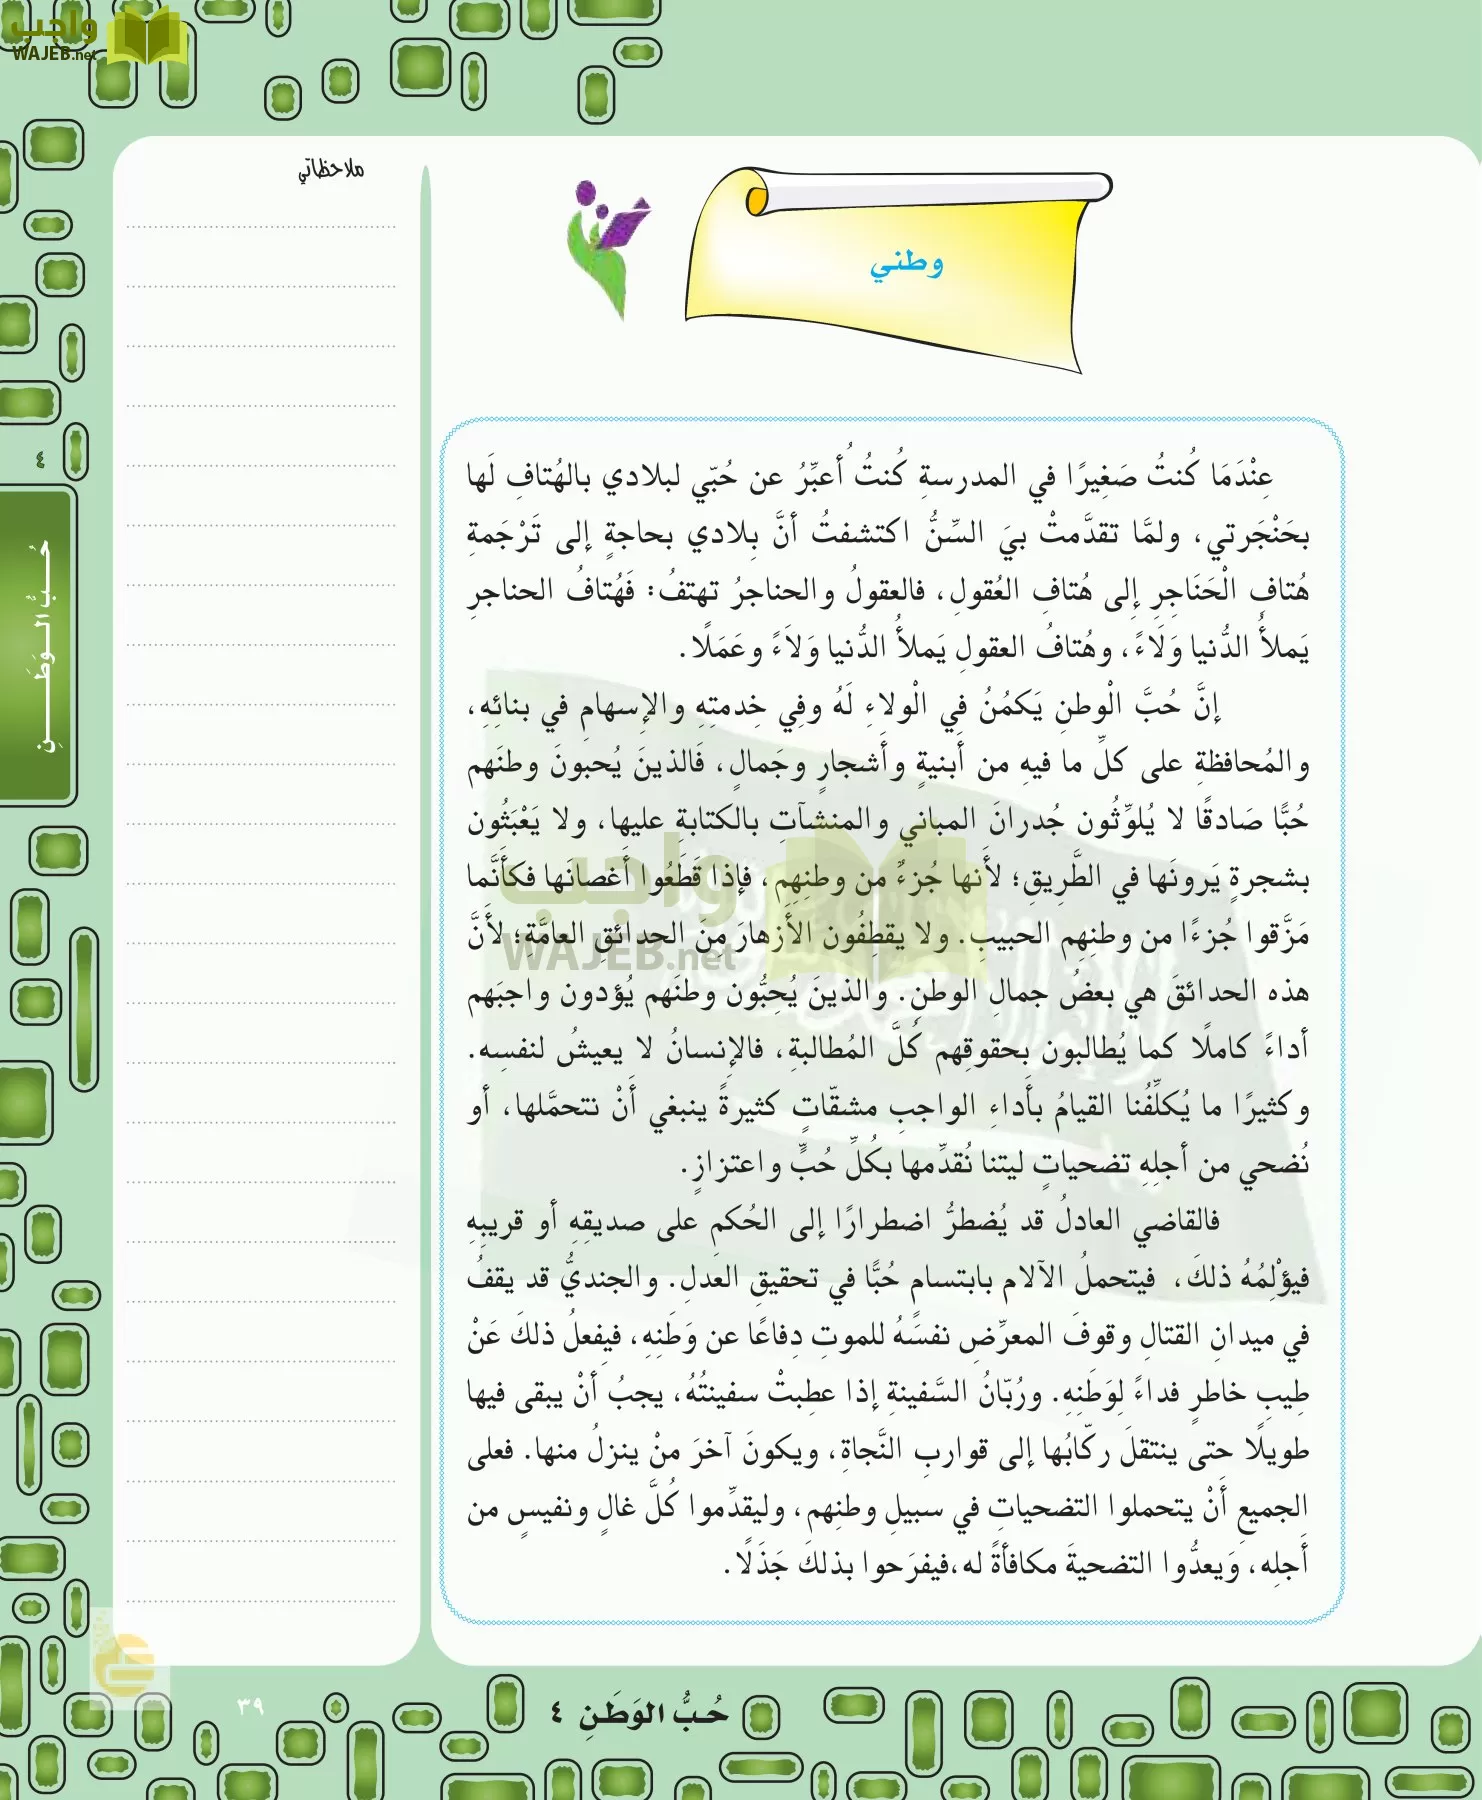 واجب
WAJEB.net
ملاحظاتي
وطني
عِنْدَمَا كُنتُ صَغِيرًا في المدرسةِ كُنتُ أُعبِّرُ عن حُبّي لبلادي بالهُتافِ لَها
بحَنْجَرتي، ولمَّا تقدَّمتْ بيَ السِّنُّ اكتشفتُ أنَّ بِلادي بحاجةٍ إلى تَرْجَمةِ
هُتافِ الْحَنَاجِرِ إلى هُتافِ العُقولِ، فالعقولُ والحناجرُ تهتفُ: فَهُتافُ الحناجرِ
يَملأُ الدُّنيا وَلَاءً، وهُتافُ العقولِ يَملأُ الدُّنيا وَلاَءً وعَمَلًا.
إنَّ حُبَّ الْوطنِ يَكمُنُ فِي الْولاءِ لَهُ وفِي خِدمتِهِ والإسهامِ في بنائِهِ،
والمُحافظةِ على كلِّ ما فيهِ من أَبنيةٍ وأَشجارٍ وجَمالٍ، فَالذينَ يُحبونَ وطنَهم
حُبًّا صَادقًا لا يُلوِّثُون جُدرانَ المباني والمنشآتِ بالكتابةِ عليها، ولا يَعْبَثُون
بشجرةٍ يَرونَها في الطَّرِيقِ؛ لأَنها جُزءٌ من وطنِهِم، فإذا قَطَعُوا أَغصانَها فكأَنَّما
مَزَّقوا جُزءًا من وطنِهِم الحبيبِ. ولا يقطِفُون الأَزهارَ مِنَ الحدائقِ العامَّةِ؛ لأَنَّ
هذه الحدائقَ هي بعضُ جمالِ الوطنِ. والذينَ يُحِبُّون وطنَهم يُؤدون واجبَهم
أداءً كاملًا كما يُطالبون بحقوقِهم كُلَّ المُطالبةِ، فالإنسانُ لا يعيشُ لنفسِه.
وكثيرًا ما يُكلِّفُنا القيامُ بأَداءِ الواجبِ مشقّاتٍ كثيرةً ينبغي أَنْ نتحمَّلها، أو
نُضحي من أجلِهِ تضحياتٍ ليتنا نُقدِّمها بكُلِّ حُبٍّ واعتزازٍ.
فالقاضي العادلُ قد يُضطرُّ اضطرارًا إلى الحُكم على صديقِهِ أو قريبِهِ
فيؤْلِمُهُ ذلكَ، فيتحملُ الآلام بابتسام حُبًّا في تحقيقِ العَدلِ. والجنديُّ قد يقفُ
في ميدانِ القتالِ وقوفَ المعرِّضِ نفسَهُ للموتِ دِفاعًا عن وَطَنِهِ، فيفعلُ ذلكَ عَنْ
طِيبِ خاطرٍ فداءً لِوَطَنِهِ. ورُبّانُ السَّفينةِ إذا عطِبتْ سفينتُهُ، يجبُ أنْ يبقى فيها
طويلًا حتى ينتقلَ ركّابُها إلى قواربِ النَّجاةِ، ويكونَ آخرَ منْ ينزلُ منها. فعلى
الجميعِ أَنْ يتحملوا التضحياتِ في سبيلِ وطنِهم، وليقدِّموا كُلَّ غالٍ ونفيسٍ من
أجلِه، وَيعدُّوا التضحيةَ مكافأةً له،فيفرَحوا بذلكَ جَذَلًا.
٤
حُبُّ الوَطَنِ
واجب
WAJEB.net
حُبُّ الوَطَنِ ٤
٣٩